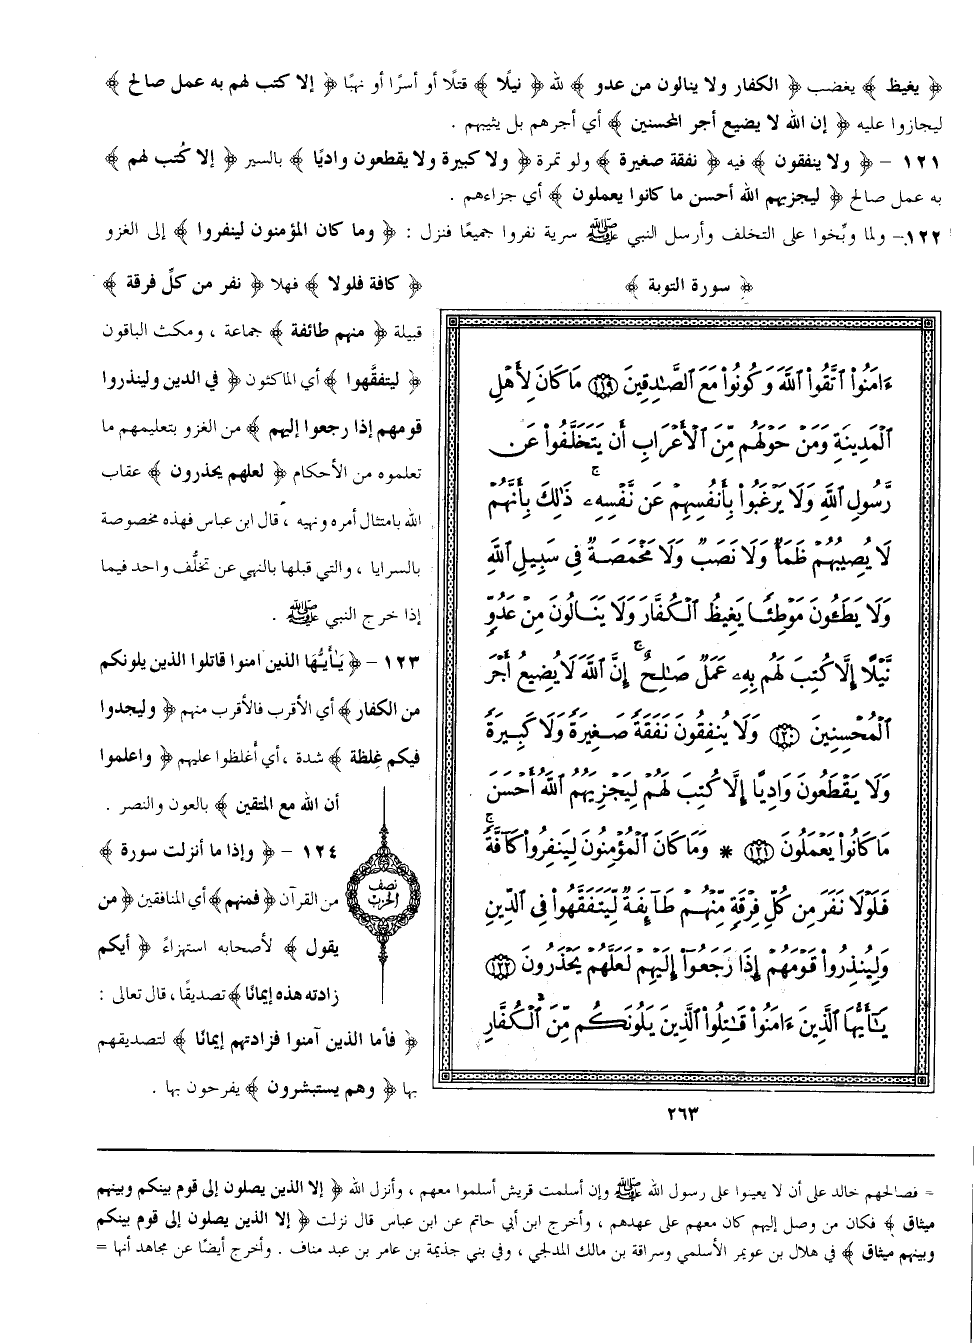 ﴿ يغيظ ﴾ يغضب ﴿ الكفار ولا ينالون من عدو ﴾ لله ﴿ نيلًا ﴾ قتلًا أو أسرًا أو نهبًا ﴿ إلا كتب لهم به عمل صالح ﴾
ليجازوا عليه ﴿ إن الله لا يضيع أجر المحسنين ﴾ أي أجرهم بل يثيبهم .
١٢١ – ﴿ ولا ينفقون ﴾ فيه ﴿ نفقة صغيرة ﴾ ولو تمرة ﴿ ولا كبيرة ولا يقطعون واديًا ﴾ بالسير ﴿ إلا كُتب لهم ﴾
به عمل صالح ﴿ ليجزيهم الله أحسن ما كانوا يعملون ﴾ أي جزاءهم .
١٢٢ – ولما وبِّخوا على التخلف وأرسل النبي ﷺ سرية نفروا جميعًا فنزل : ﴿ وما كان المؤمنون لينفروا ﴾ إلى الغزو
﴿ كافة فلولا ﴾ فهلا ﴿ نفر من كلِّ فرقة ﴾
قبيلة ﴿ منهم طائفة ﴾ جماعة ، ومكث الباقون
﴿ ليتفقَّهوا ﴾ أي الماكثون ﴿ في الدين ولينذروا
قومهم إذا رجعوا إليهم ﴾ من الغزو بتعليمهم ما
تعلموه من الأحكام ﴿ لعلهم يحذرون ﴾ عقاب
الله بامتثال أمره ونهيه ، قال ابن عباس فهذه مخصوصة
بالسرايا ، والتي قبلها بالنهي عن تخلُّف واحد فيما
إذا خرج النبي ﷺ .
١٢٣ – ﴿ يَـٰأيـُّهَا الذين آمنوا قاتلوا الذين يلونكم
من الكفار ﴾ أي الأقرب فالأقرب منهم ﴿ وليجدوا
فيكم غِلظة ﴾ شدة ، أي أغلظوا عليهم ﴿ واعلموا
أن الله مع المتقين ﴾ بالعون والنصر .
١٢٤ – ﴿ وإذا ما أنزلت سورة ﴾
من القرآن ﴿ فمنهم ﴾ أي المنافقين ﴿ من
يقول ﴾ لأصحابه استهزاءً ﴿ أيكم
زادته هذه إيمانًا ﴾ تصديقًا ، قال تعالى :
﴿ فأما الذين آمنوا فزادتهم إيمانًا ﴾ لتصديقهم
بها ﴿ وهم يستبشرون ﴾ يفرحون بها .
نصف
الحزب
﴿ سورة التوبة ﴾
ءَامَنُوا۟ ٱتَّقُوا۟ ٱللَّهَ وَكُونُوا۟ مَعَ ٱلصَّـٰدِقِينَ ١١٩ مَا كَانَ لِأَهْلِ
ٱلْمَدِينَةِ وَمَنْ حَوْلَهُم مِّنَ ٱلْأَعْرَابِ أَن يَتَخَلَّفُوا۟ عَن
رَّسُولِ ٱللَّهِ وَلَا يَرْغَبُوا۟ بِأَنفُسِهِمْ عَن نَّفْسِهِۦ ۚ ذَٰلِكَ بِأَنَّهُمْ
لَا يُصِيبُهُمْ ظَمَأٌ وَلَا نَصَبٌ وَلَا مَخْمَصَةٌ فِى سَبِيلِ ٱللَّهِ
وَلَا يَطَـُٔونَ مَوْطِئًا يَغِيظُ ٱلْكُفَّارَ وَلَا يَنَالُونَ مِنْ عَدُوٍّ
نَّيْلًا إِلَّا كُتِبَ لَهُم بِهِۦ عَمَلٌ صَـٰلِحٌ ۚ إِنَّ ٱللَّهَ لَا يُضِيعُ أَجْرَ
ٱلْمُحْسِنِينَ ١٢٠ وَلَا يُنفِقُونَ نَفَقَةً صَغِيرَةً وَلَا كَبِيرَةً
وَلَا يَقْطَعُونَ وَادِيًا إِلَّا كُتِبَ لَهُمْ لِيَجْزِيَهُمُ ٱللَّهُ أَحْسَنَ
مَا كَانُوا۟ يَعْمَلُونَ ١٢١ * وَمَا كَانَ ٱلْمُؤْمِنُونَ لِيَنفِرُوا۟ كَآفَّةً ۚ
فَلَوْلَا نَفَرَ مِن كُلِّ فِرْقَةٍ مِّنْهُمْ طَآئِفَةٌ لِّيَتَفَقَّهُوا۟ فِى ٱلدِّينِ
وَلِيُنذِرُوا۟ قَوْمَهُمْ إِذَا رَجَعُوٓا۟ إِلَيْهِمْ لَعَلَّهُمْ يَحْذَرُونَ ١٢٢
يَـٰٓأَيُّهَا ٱلَّذِينَ ءَامَنُوا۟ قَـٰتِلُوا۟ ٱلَّذِينَ يَلُونَكُم مِّنَ ٱلْكُفَّارِ
٢٦٣
= فصالحهم خالد على أن لا يعينوا على رسول الله ﷺ وإن أسلمت قريش أسلموا معهم ، وأنزل الله ﴿ إلا الذين يصلون إلى قوم بينكم وبينهم
ميثاق ﴾ فكان من وصل إليهم كان معهم على عهدهم ، وأخرج ابن أبي حاتم عن ابن عباس قال نزلت ﴿ إلا الذين يصلون إلى قوم بينكم
وبينهم ميثاق ﴾ في هلال بن عويمر الأسلمي وسراقة بن مالك المدلجي ، وفي بني جذيمة بن عامر بن عبد مناف . وأخرج أيضًا عن مجاهد أنها =